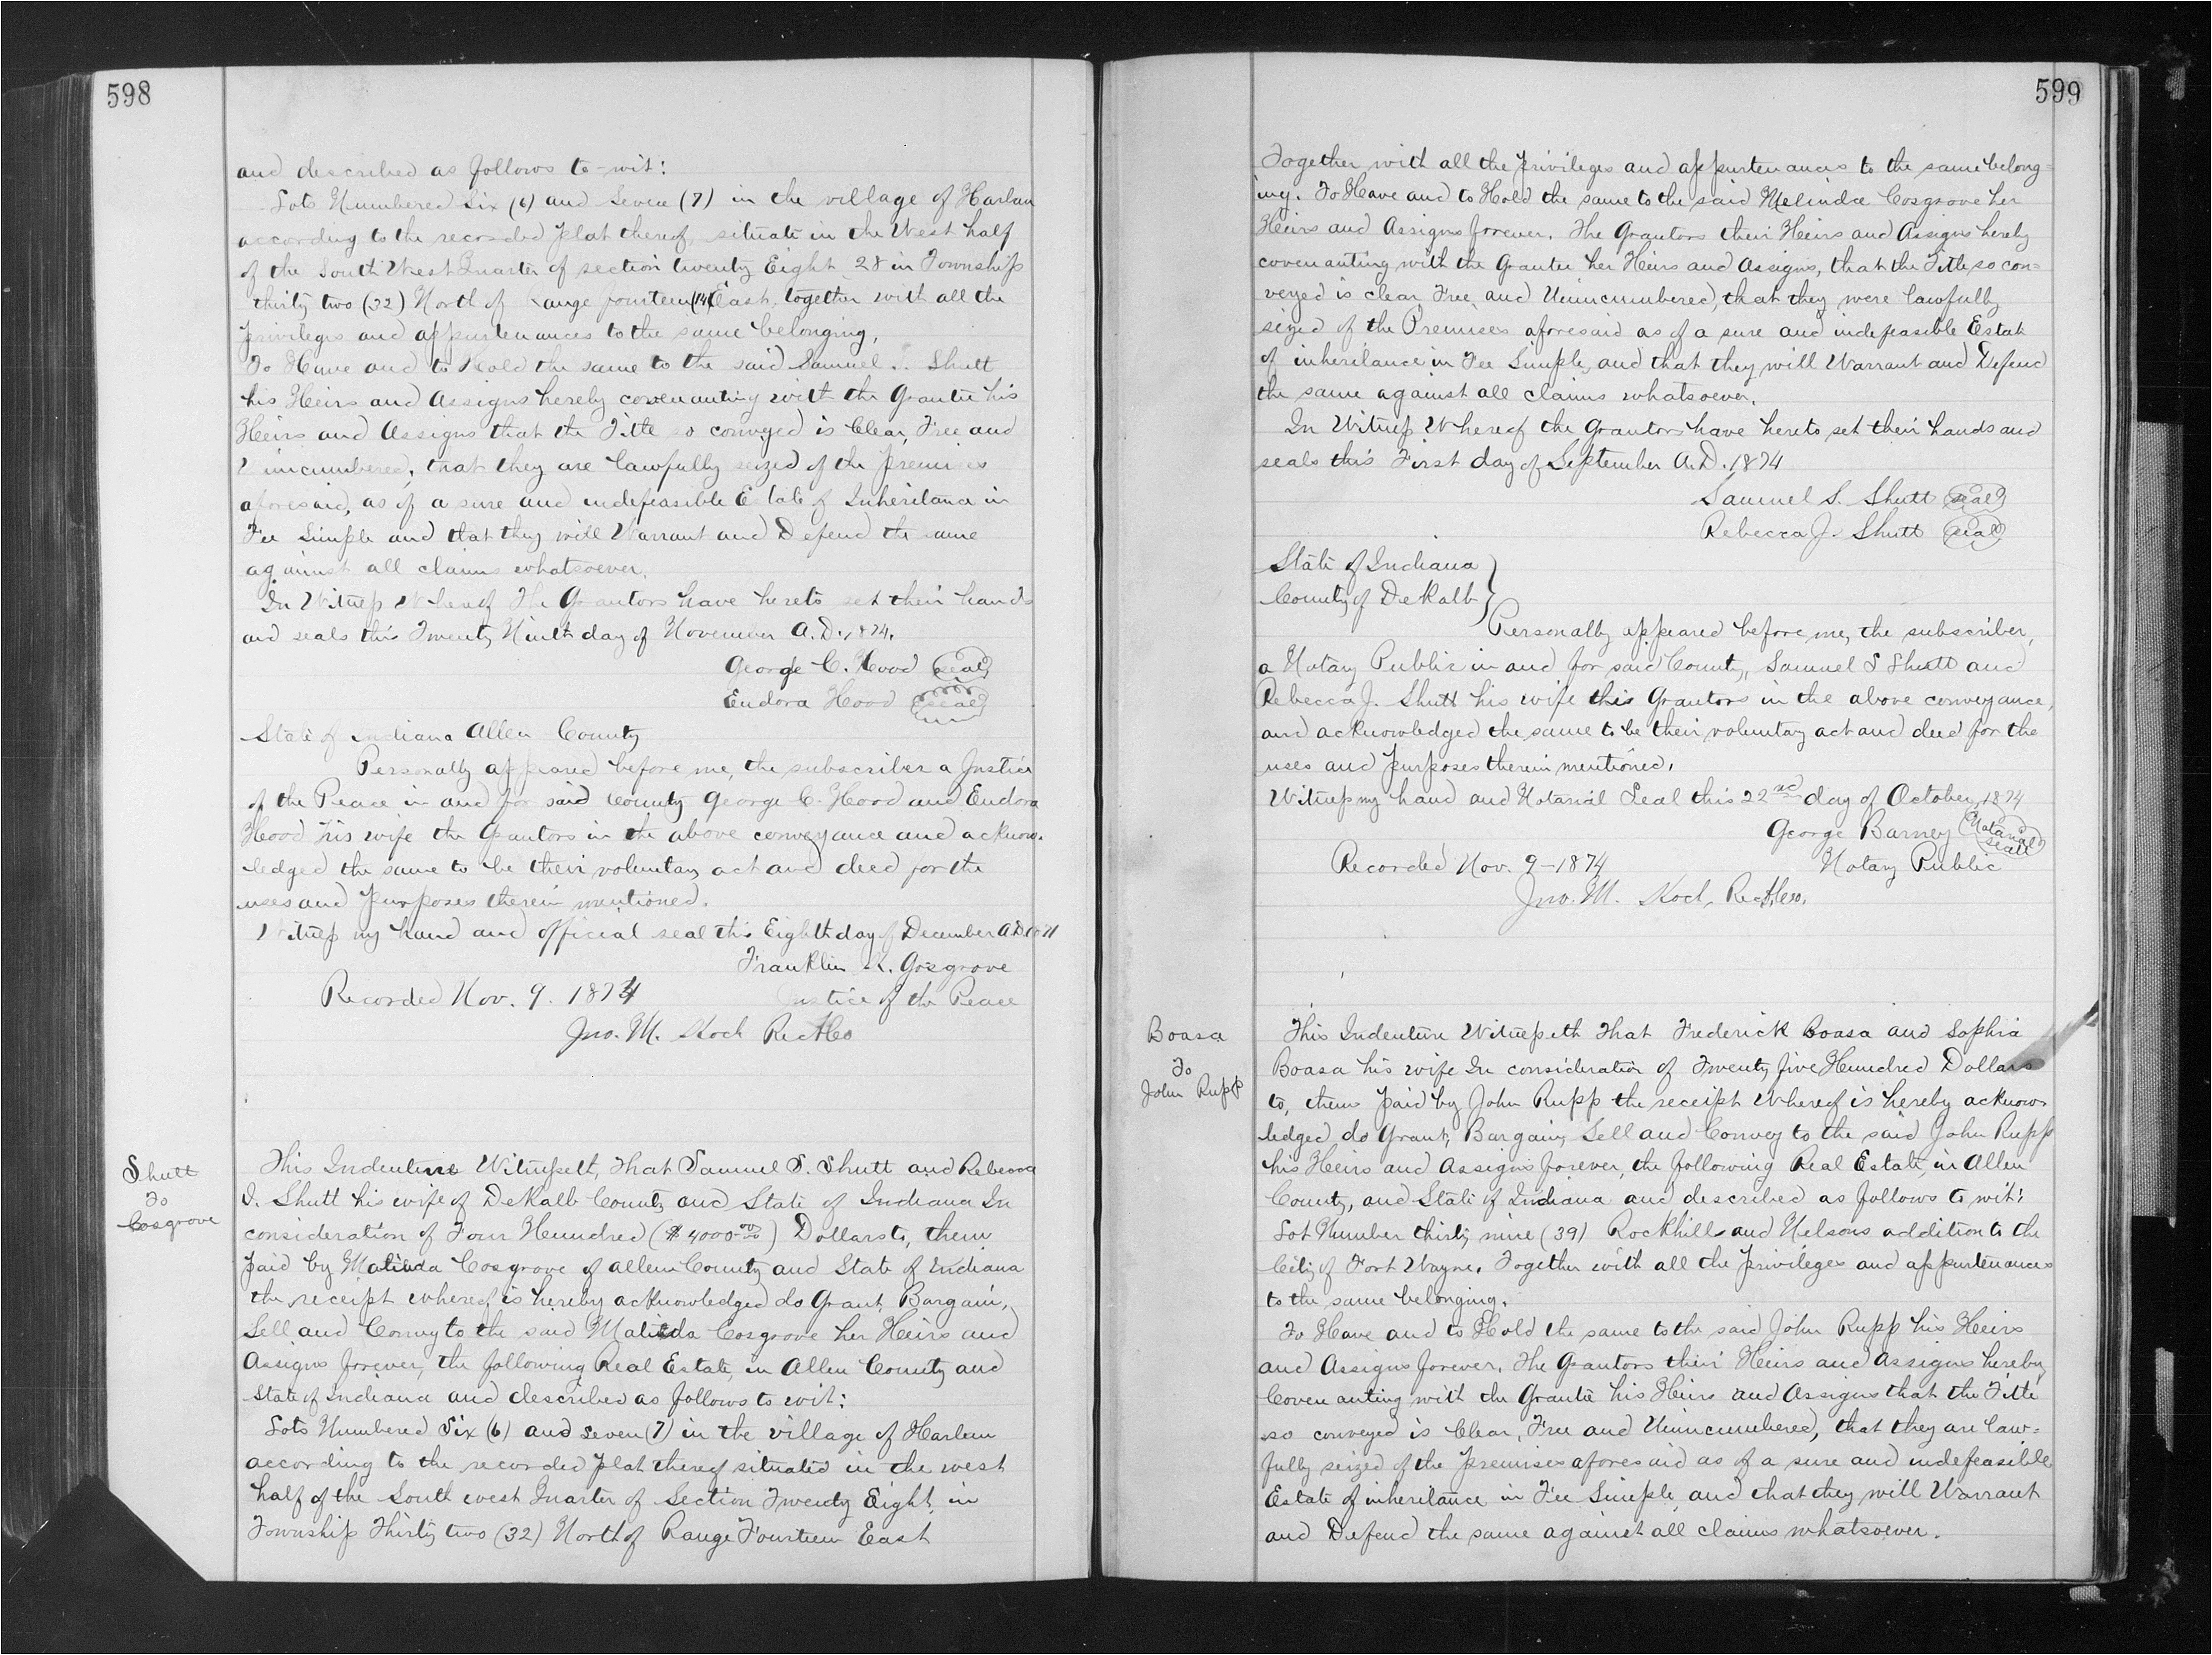 598
and described as follows to-wit:
Lots Numbered Six (6) and Seven (7) in the village of Harlan
according to the recorded plat thereof situate in the West half
of the South West Quarter of section twenty Eight 28 in Township
thirty two (32) North of Range fourteen (14) East. together with all the
privileges and appurtenances to the same belonging,
To Have and to Hold the same to the said Samuel S. Shutt
his Heirs and Assigns hereby covenanting with the Grantee his
Heirs and Assigns that the Title so conveyed is Clear, Free and
Unincumbered, that they are lawfully seized of the premises
aforesaid, as of a sure and indefeasible Estate of Inheritance in
Fee Simple and that they will Warrant and Defend the same
against all claims whatsoever.
In Witness Whereof The Grantors have hereto set their hands
and seals this Twenty Ninth day of November A.D. 1874.
George C. Hood (seal)
Eudora Hood (seal)
State of Indiana Allen County
Personally appeared before me, the subscriber a Justice
of the Peace in and for said County George C. Hood and Eudora
Hood his wife the Grantors in the above conveyance and acknow-
ledged the same to be their voluntary act and deed for the
uses and purposes therein mentioned.
Witness my hand and official seal this Eighth day of December A.D.
Franklin K. Cosgrove
Recorded Nov. 9. 1874 Justice of the Peace
Jno. M. Koch RecACo
Shutt
To
Cosgrove
This Indenture Witnesseth, That Samuel S. Shutt and Rebecca
J. Shutt his wife of DeKalb County and State of Indiana In
consideration of Four Hundred ($4000.00) Dollars to, them
paid by Malinda Cosgrove of Allen County and State of Indiana
the receipt whereof is hereby acknowledged do Grant, Bargain,
Sell and Convey to the said Malinda Cosgrove her Heirs and
Assigns forever, the following Real Estate, in Allen County and
State of Indiana and described as follows to wit:
Lots Numbered Six (6) and Seven (7) in the village of Harlem
according to the recorded plat thereof situated in the west
half of the South west Quarter of Section Twenty Eight, in
Township Thirty two (32) North of Range Fourteen East
599
Together with all the privileges and appurtenances to the same belong=
ing. To Have and to Hold the same to the said Melinda Cosgrove her
Heirs and Assigns forever. The Grantors their Heirs and Assigns hereby
covenanting with the Grantee her Heirs and Assigns, that the Title, so con=
veyed is clear, Free, and Unincumbered, that they were lawfully
seized of the Premises aforesaid as of a sure and indefeasible Estate
of inheritance in Fee Simple, and that they will Warrant and Defend
the same against all claims whatsoever.
In Witness Whereof the Grantors have hereto set their hands and
seals this First day of September A.D. 1874
Samuel S. Shutt (seal)
Rebecca J. Shutt (seal)
State of Indiana }
County of DeKalb }
Personally appeared before me, the subscriber,
a Notary Public in and for said County, Samuel S Shutt and
Rebecca J. Shutt his wife this Grantors in the above conveyance,
and acknowledged the same to be their voluntary act and deed for the
uses and purposes therein mentioned.
Witness my hand and Notarial Seal this 22nd day of October, 1874
George Barney (Notarial Seal)
Recorded Nov. 9-1874 Notary Public
Jno. M. Koch, RecACo.
Boasa
To
John Rupp
This Indenture Witnesseth That Frederick Boasa and Sophia
Boasa his wife In consideration of Twenty five Hundred Dollars
to, them paid by John Rupp the receipt Whereof is hereby acknow-
ledged do Grant, Bargain, Sell and Convey to the said John Rupp
his Heirs and Assigns forever, the following Real Estate, in Allen
County, and State of Indiana and described as follows to wit:
Lot Number thirty nine (39) Rockhills and Nelsons addition to the
City of Fort Wayne. Together with all the privileges and appurtenances
to the same belonging.
To Have and to Hold the same to the said John Rupp his Heirs
and Assigns forever. The Grantors their Heirs and Assigns hereby
Covenanting with the Grantee his Heirs and Assigns that the Title
so conveyed is Clear, Free and Unincumbered, that they are law=
fully seized of the Premises aforesaid as of a sure and indefeasible
Estate of inheritance in Fee Simple, and that they will Warrant
and Defend the same against all claims whatsoever.